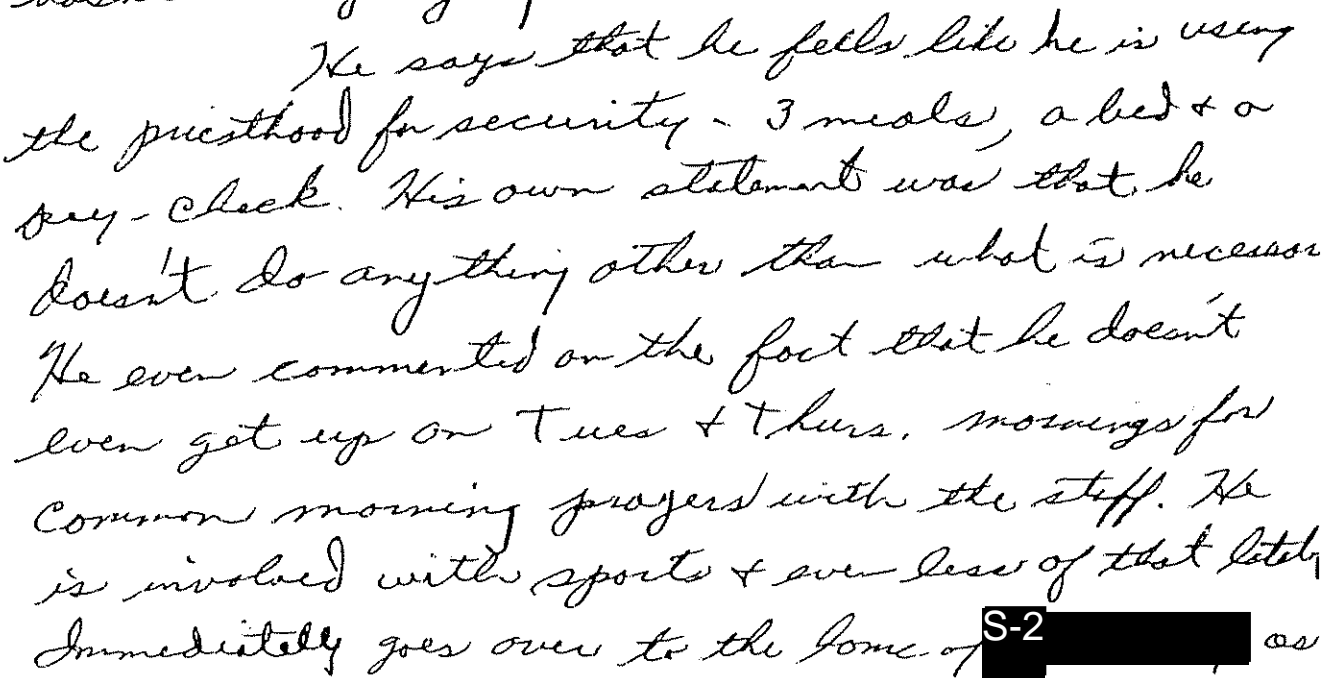 He says that he feels like he is using
the priesthood for security - 3 meals, a bed & a
pay-check. His own statement was that he
doesn't do anything other than what is necessar
He even commented on the fact that he doesn't
even get up on Tues & Thurs. mornings for
common morning prayers with the staff. He
is involved with sports & even less of that lately
Immediately goes over to the home of S-2 as